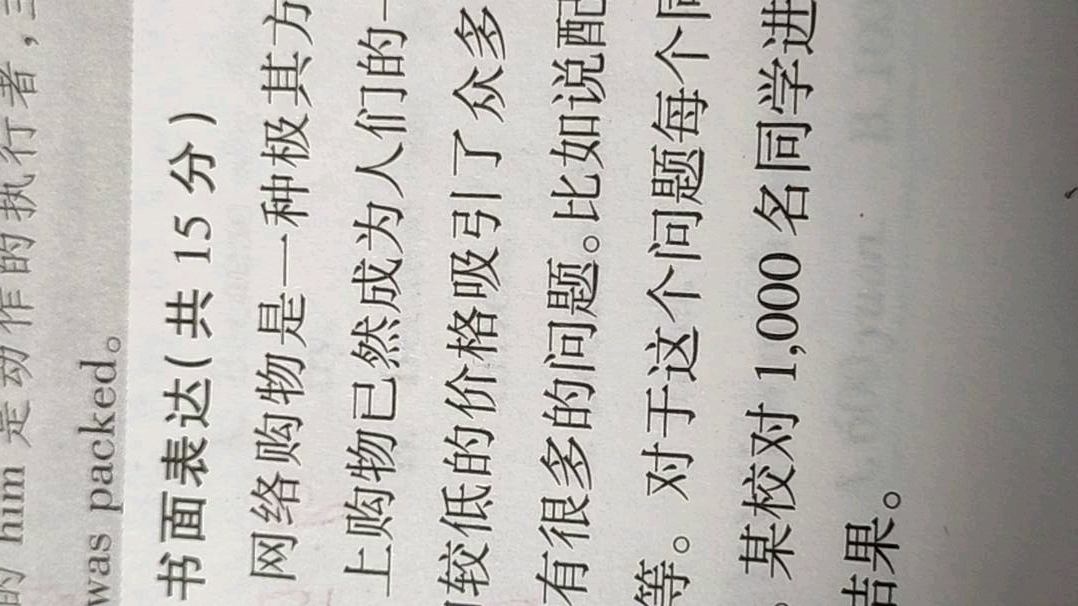 的 him 是动作的执行者,
was packed。
书面表达(共 15 分)
网络购物是一种极其方
上购物已然成为人们的一
较低的价格吸引了众多
有很多的问题。比如说配
等。对于这个问题每个同
某校对 1,000 名同学进
结果。